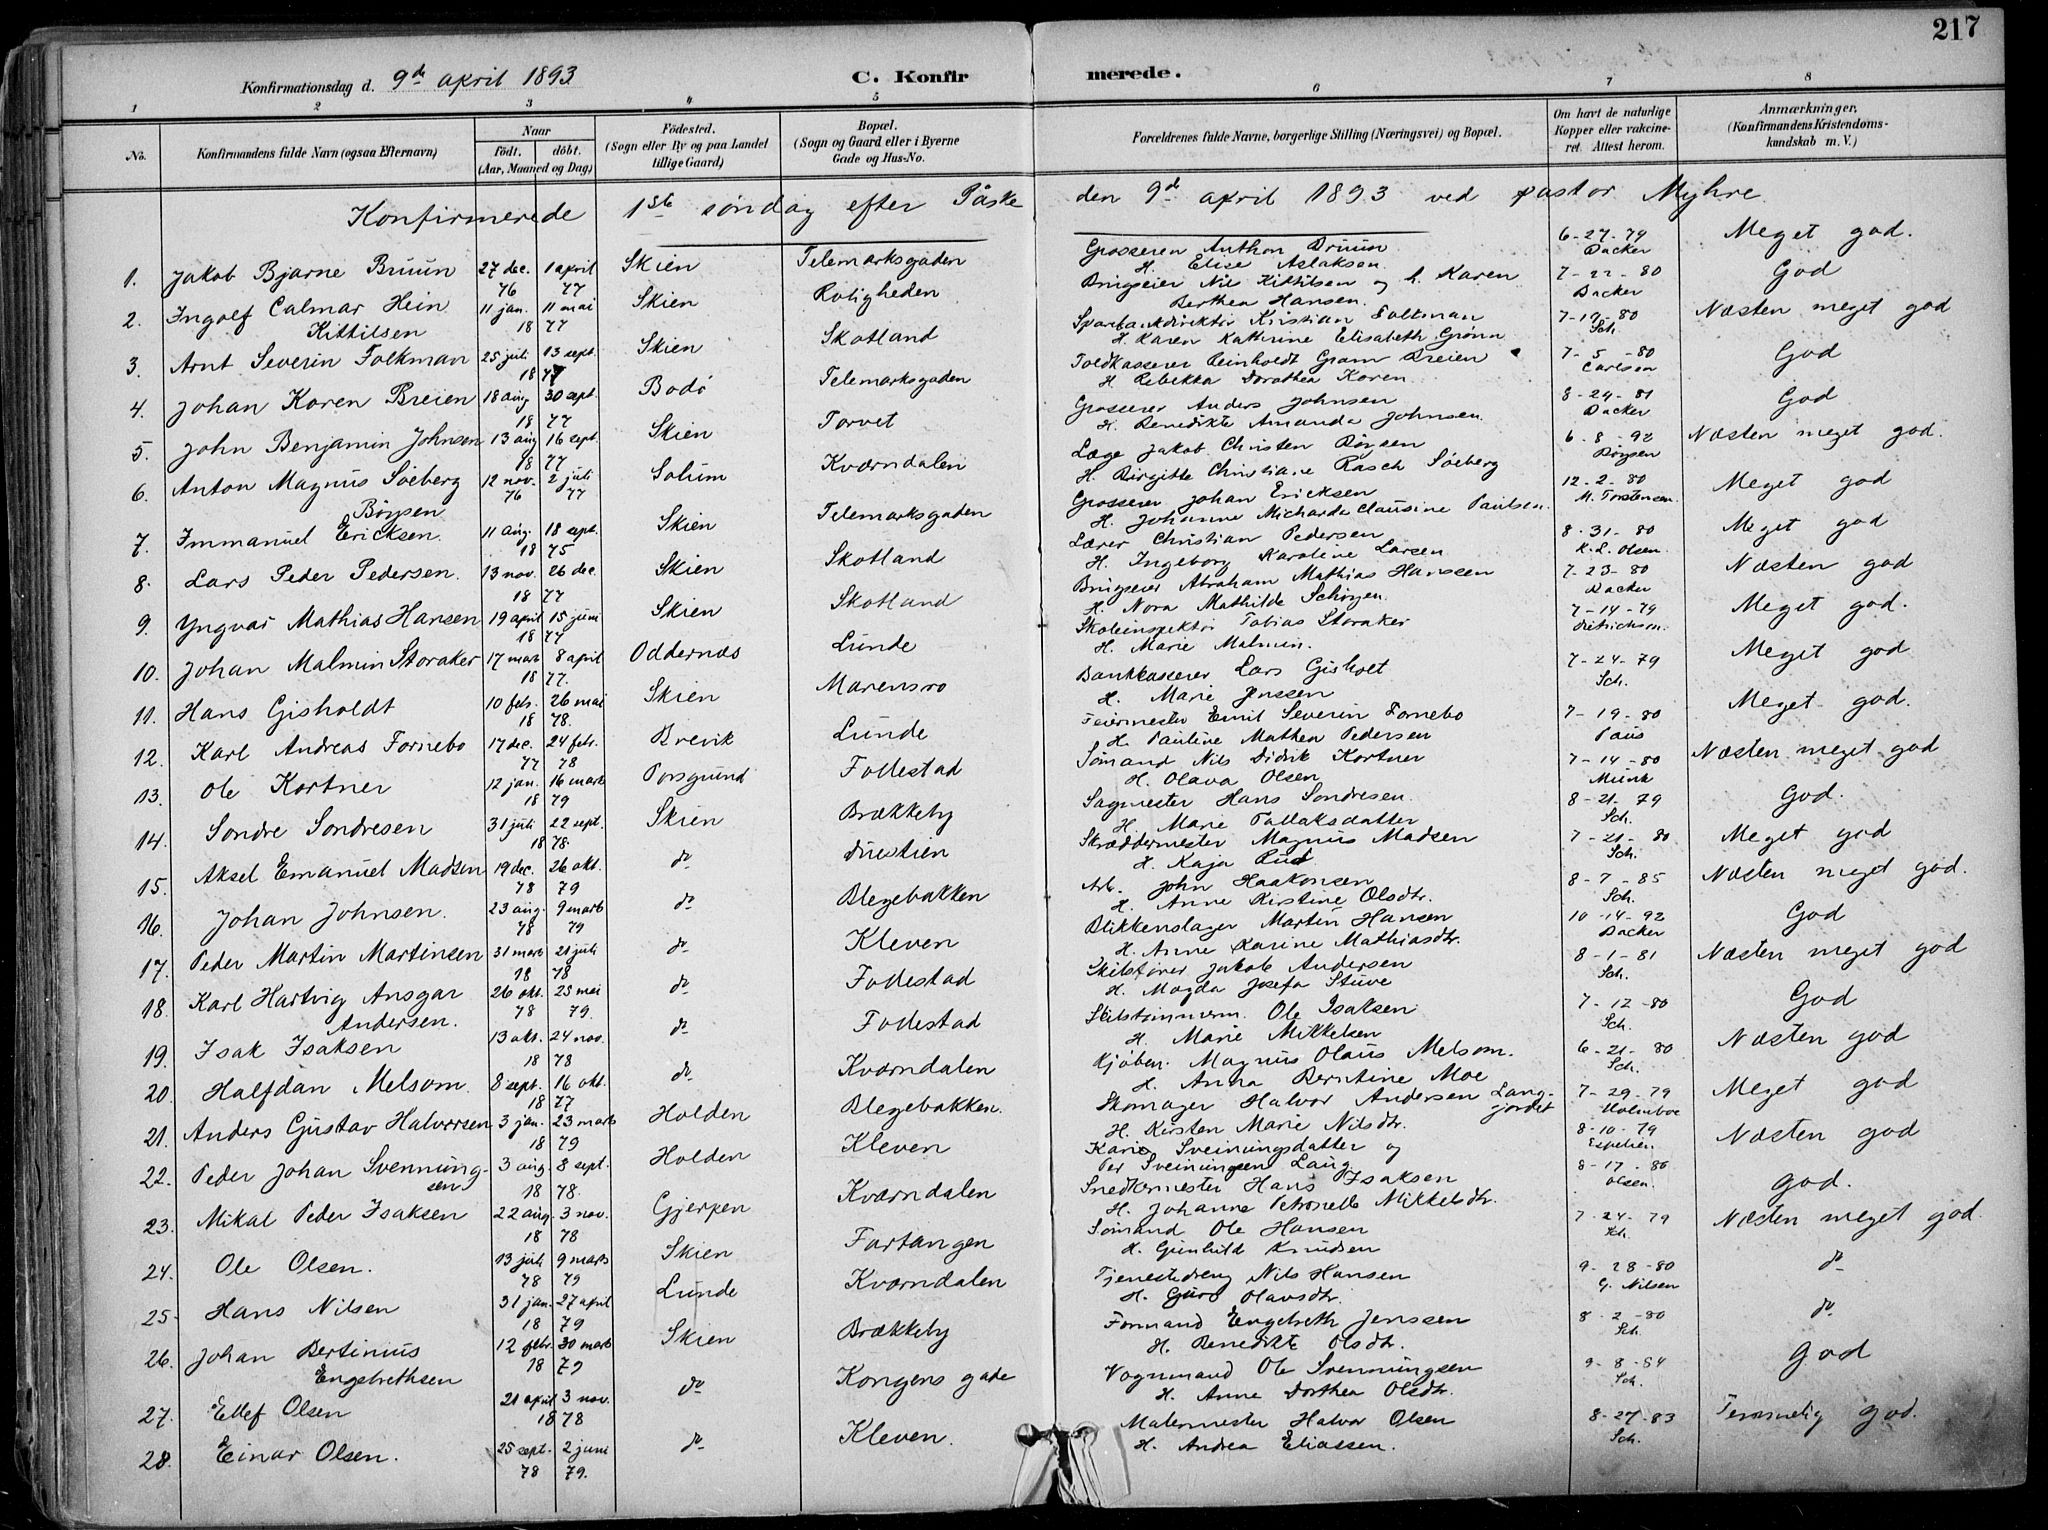 217
Konfirmationsdag d. 9de april 1893 C. Konfirmerede.
1 2 3 4 5 6 7 8
No. Konfirmandens fulde Navn (ogsaa Efternavn) Naar Født. døbt. (Aar, Maaned og Dag) Fødested. (Sogn eller By og paa Landet tillige Gaard) Bopæl. (Sogn og Gaard eller i Byerne Gade og Hus-No. Forældrenes fulde Navne, borgerlige Stilling (Næringsvei) og Bopæl. Om havt de naturlige Kopper eller vakcineret. Attest herom. Anmærkninger. (Konfirmandens Kristendomskundskab m. V.)
Konfirmerede 1ste søndag efter Påske den 9de april 1893 ved pastor Myhre.
1. Jakob Bjarne Bruun 27 dec. 76 1 april 77 Skien Telemarksgaden Grosserer Anthon Bruun H. Elise Aslaksen 6-27-79 Backer Meget god.
2. Ingolf Calmar Hein Kittilsen 11 jan. 11 mai 1877 Skien Roligheden Brugseier Nils Kittilsen og h. Karen Berthea Hansen. 7-22-80 Backer God
3. Arnt Severin Folkman 25 juli 13 sept. 1877 Skien Skotland Sparbankdirektør Kristian Foltman H. Karen Kathrine Elisabeth Grønn 7-19-80 Sch. Næsten meget god
4. Johan Koren Breien 18 aug 30 sept. 1877 Bodø Telemarksgaden Toldkasserer Reinholdt Gram Breien H. Rebekka Dorothea Koren 7-5-80 Carlsen God
5. John Benjamin Johnsen 13 aug 16 sept. 1877 Skien Torvet Grosserer Anders Johnsen H. Benedikte Amanda Johnsen 8-24-81 Backer God
6. Anton Magnus Søeberg Børsen 12 nov. 76 2 juli 77 Solum Kværndalen Læge Jakob Christen Børsen H. Birgitte Christiane Rasch Søeberg 6-8-92 Børsen Næsten meget god.
7. Immanuel Ericksen. 11 aug. 18 sept. 1875 Skien Telemarksgaden Grosserer Johan Ericksen H. Johanne Micharda Clausine Paulsen. 12-2-80 M. Torstensen. Meget god
8. Lars Peder Pedersen. 13 nov. 26 dec. 1877 Skien Skotland Lærer Christian Pedersen H. Ingeborg Karoline Larsen 8-31-80 K. L. Olsen. Meget god
9. Yngvar Mathias Hansen 19 april 15 juni 1877 Skien Skotland Brugseier Abraham Mathias Hansen H. Nora Mathilde 7-23-80 Backer Næsten god
10. Johan Malmin Storaker 17 mars 8 april 1877. Oddernæs Lunde Skoleinspektør Tobias Storaker H. Marie Malmin. 7-14-79 Dietrichson. Meget god.
11. Hans Gisholdt 10 febr. 26 mai 1878. Skien Marensro Bankkasserer Lars Gisholt H. Marie Jenssen 7-24-79 Sch. Meget god
12. Karl Andreas Fornebo 17 dec. 77 24 febr. 78 Brevik Lunde Feiermester Emil Severin Fornebo H. Pauline Mathea Pedersen 7-19-80 Paus Meget god.
13. Ole Kortner 12 jan. 16 mars 1879 Porsgrund Follestad Sømand Nils Didrik Kortner H. Olava Olsen 7-14-80 Munk Næsten meget god
14. Sondre Sondresen 31 juli 22 sept. 1878. Skien Brækkeby Sagmester Hans Sondresen. H. Marie Tollaksdatter 8-21-79 Sch. God.
15. Aksel Emanuel Madsen 19 dec. 78 26 okt. 79 do Duestien Skræddermester Magnus Madsen H. Kaja Rud 7-21-80 Sch. Meget god
16. Johan Johnsen. 23 aug. 78 9 mars 79 do Blegebakken Arb. John Haakonsen H. Anne Kirstine Olsdtr. 8-7-85 Sch. Næsten meget god.
17. Peder Martin Martinsen 31 mars 21 juli 1878 do Kleven Blikkenslager Martin Hansen H. Anne Karine Mathiasdtr. 10-14-92 Backer God
18. Karl Hartvig Ansgar Andersen. 26 okt. 78 25 mai 79. do Follestad Skibsfører Jakob Andersen H. Magda Josefa Stuve 8-1-81 Sch. Næsten meget god
19. Isak Isaksen 13 okt. 24 nov. 1878 do Follestad Skibstømmerm. Ole Isaksen H. Marie Mikkelsen 7-12-80 Sch. God
20. Halfdan Melsom 8 sept. 16 okt. 1877 do Kværndalen Kjøbm. Magnus Olaus Melsom. H. Anna Berntine Moe 6-21-80 Sch. Næsten god
21. Anders Gustav Halvorsen 3 jan. 23 mars 1879 Holden Blegebakken. Skomager Halvor Andersen Langjordet H. Kirsten Marie Nilsdtr. 7-29-79 Holmboe Meget god
22. Peder Johan Svenningsen 3 aug. 8 sept. 1878. Holden Kleven Karie Sveinungsdatter og Per Sveinungsen Laug. 8-10-79 Næsten god
23. Mikal Peder Isaksen 22 aug. 3 nov. 1878 Gjerpen Kværndalen Snedkermester Hans Isaksen H. Johanne Petronelle Mikkelsdtr. 8-17-80 Olsen. god.
24. Ole Olsen. 13 juli 78 9 mars 79 Skien Fartangen Sømand Ole Hansen H. Gunhild Knudsen 7-24-79 Næsten meget god.
25. Hans Nilsen 31 jan. 27 april 1879 Lunde Kværndalen Tjenestedreng Nils Hansen H. Guro Olavsdtr. 9-28-80 G. Nilsen do
26. Johan Bertinius Engebrethsen 12 febr. 30 mars 1879 Skien Brækkeby Formand Engebreth Jenssen H. Benedikte Olsdtr. 8-2-80 Sch. do
27. Ellef Olsen 21 april 3 nov. 1878 do Kongens gade Vognmand Ole Svenningsen H. Anne Dorthea Olsdtr. 9-8-84 Sch. God
28. Einar Olsen. 25 sept. 78 2 juni 79. do Kleven. Malermester Halvor Olsen H. Andrea Eliassen. 8-27-83 Sch. Temmelig god.